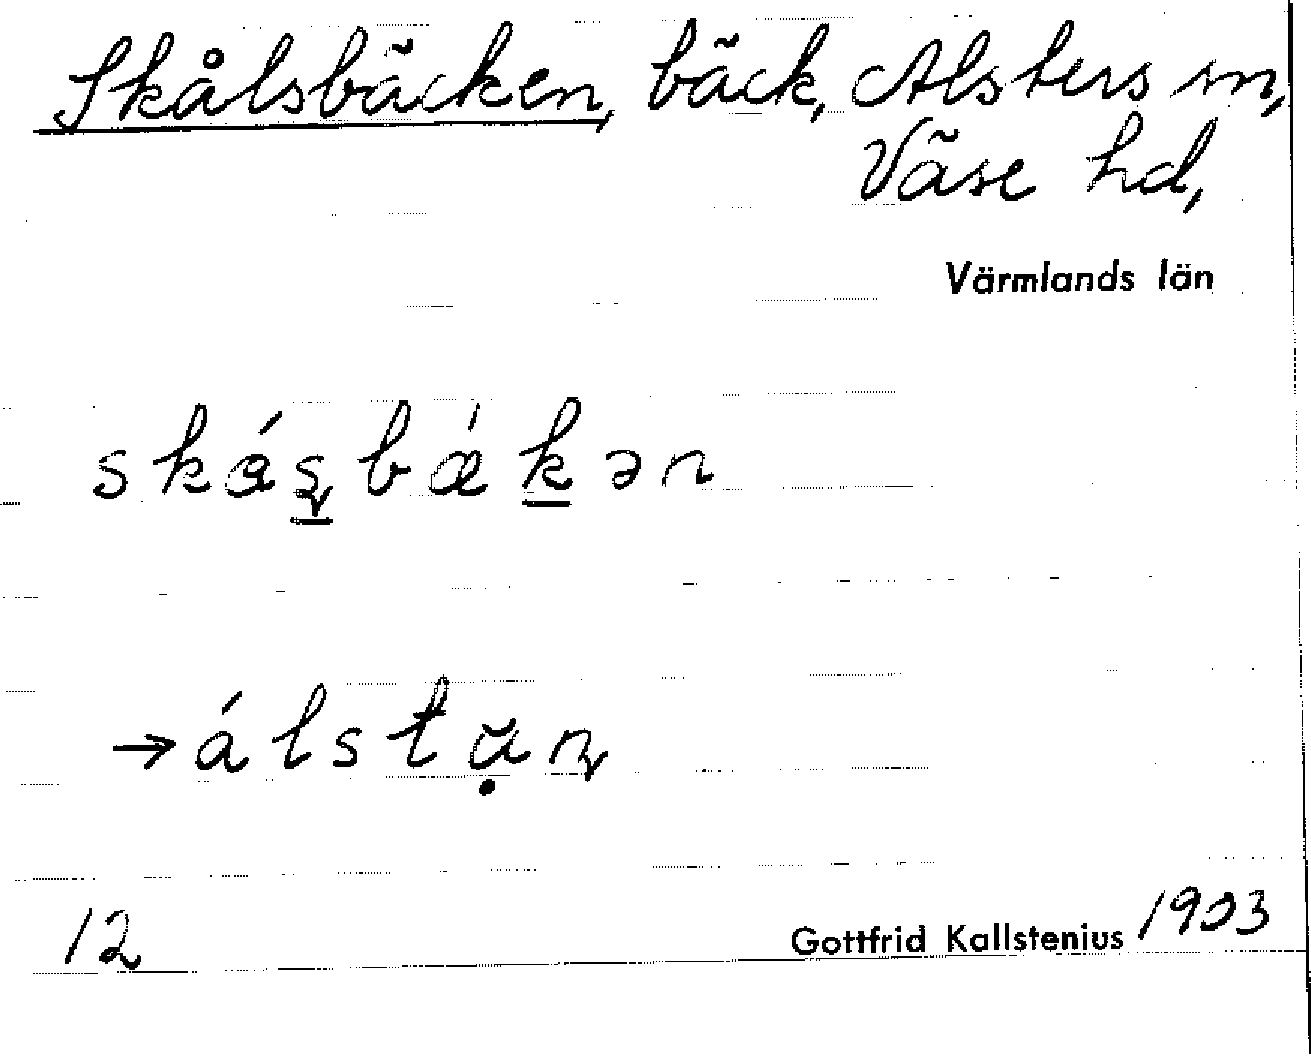 Skålsbäcken, bäck, Alsters sn,
Väse hd,
Värmlands län
skáʂbǽkən
→ álstăṇ
12
Gottfrid Kallstenius 1903